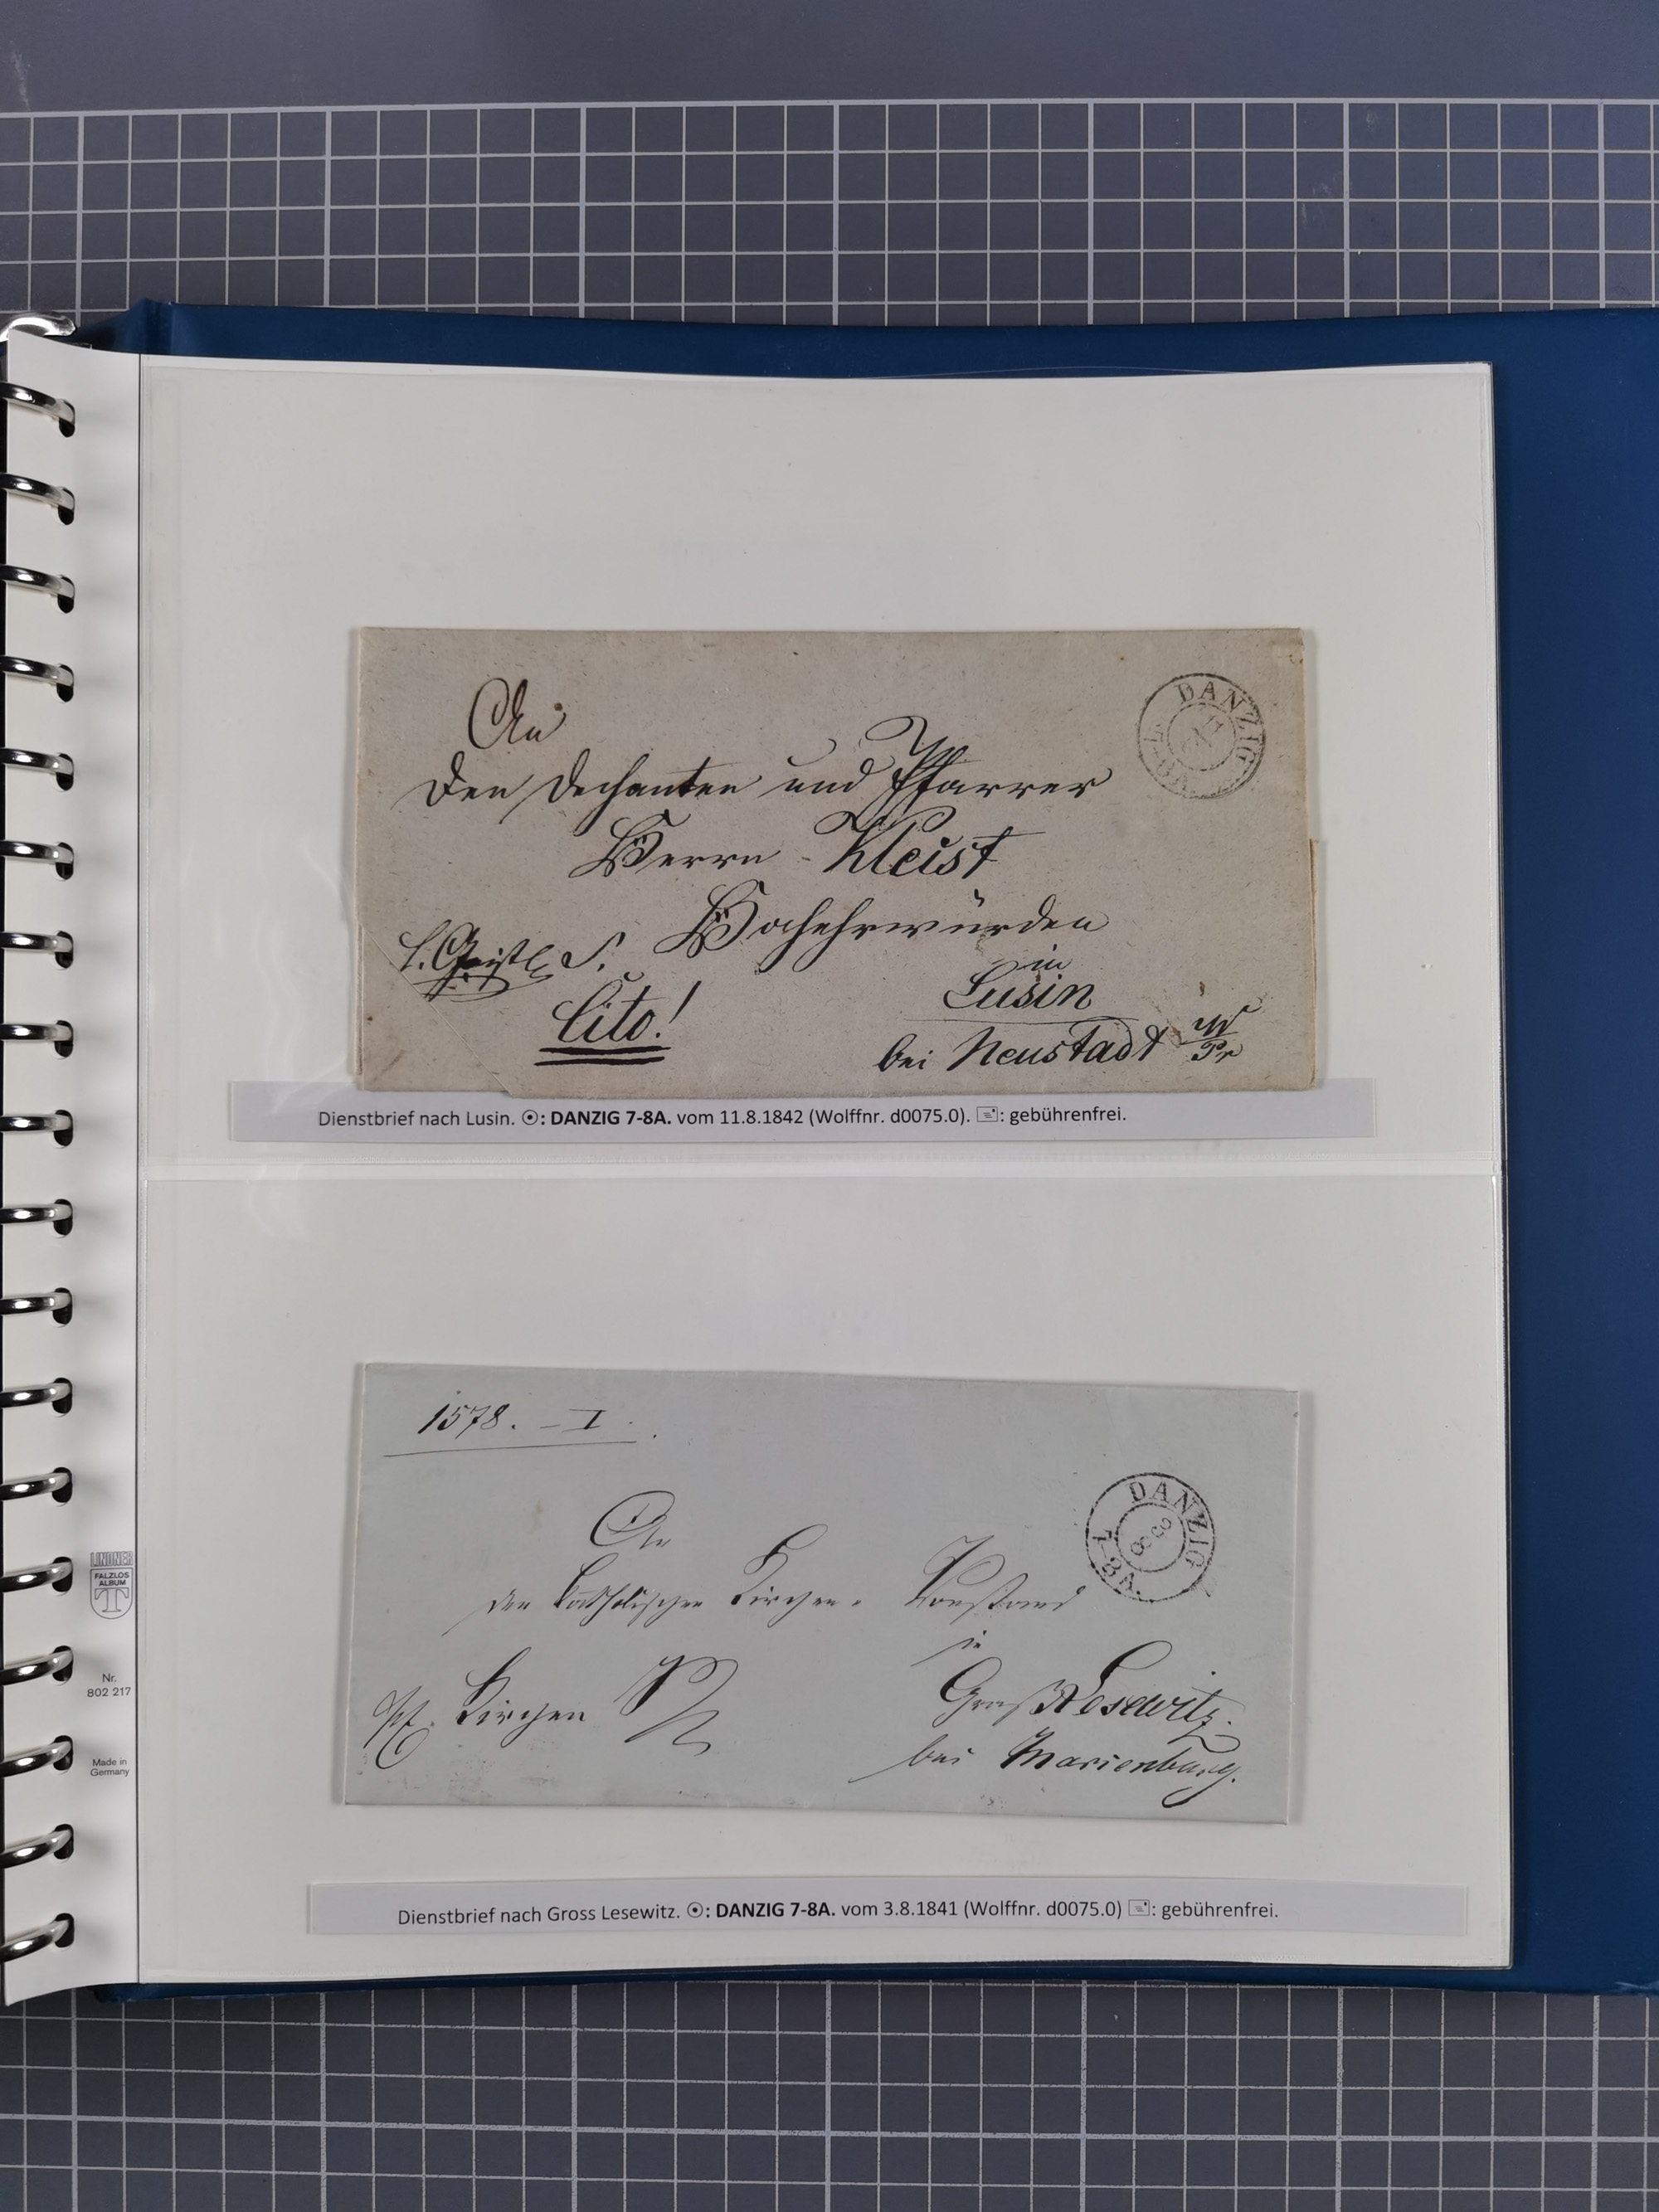 An
den Dechanten und Pfarrer
Herrn Kleist
Hochehrwürden
in
Lusin
Cito!
bei Neustadt W/Pr
DANZIG
Dienstbrief nach Lusin. ☉: DANZIG 7-8A. vom 11.8.1842 (Wolffnr. d0075.0). 🖃: gebührenfrei.
1578. – I.
An
den katholischen Kirchen-Vorstand
in
Groß Lesewitz.
bei Marienburg.
Kirchen
DANZIG
7-8A.
3 8
Dienstbrief nach Gross Lesewitz. ☉: DANZIG 7-8A. vom 3.8.1841 (Wolffnr. d0075.0) 🖃: gebührenfrei.
LINDNER
FALZLOS
ALBUM
T
Nr.
802 217
Made in
Germany